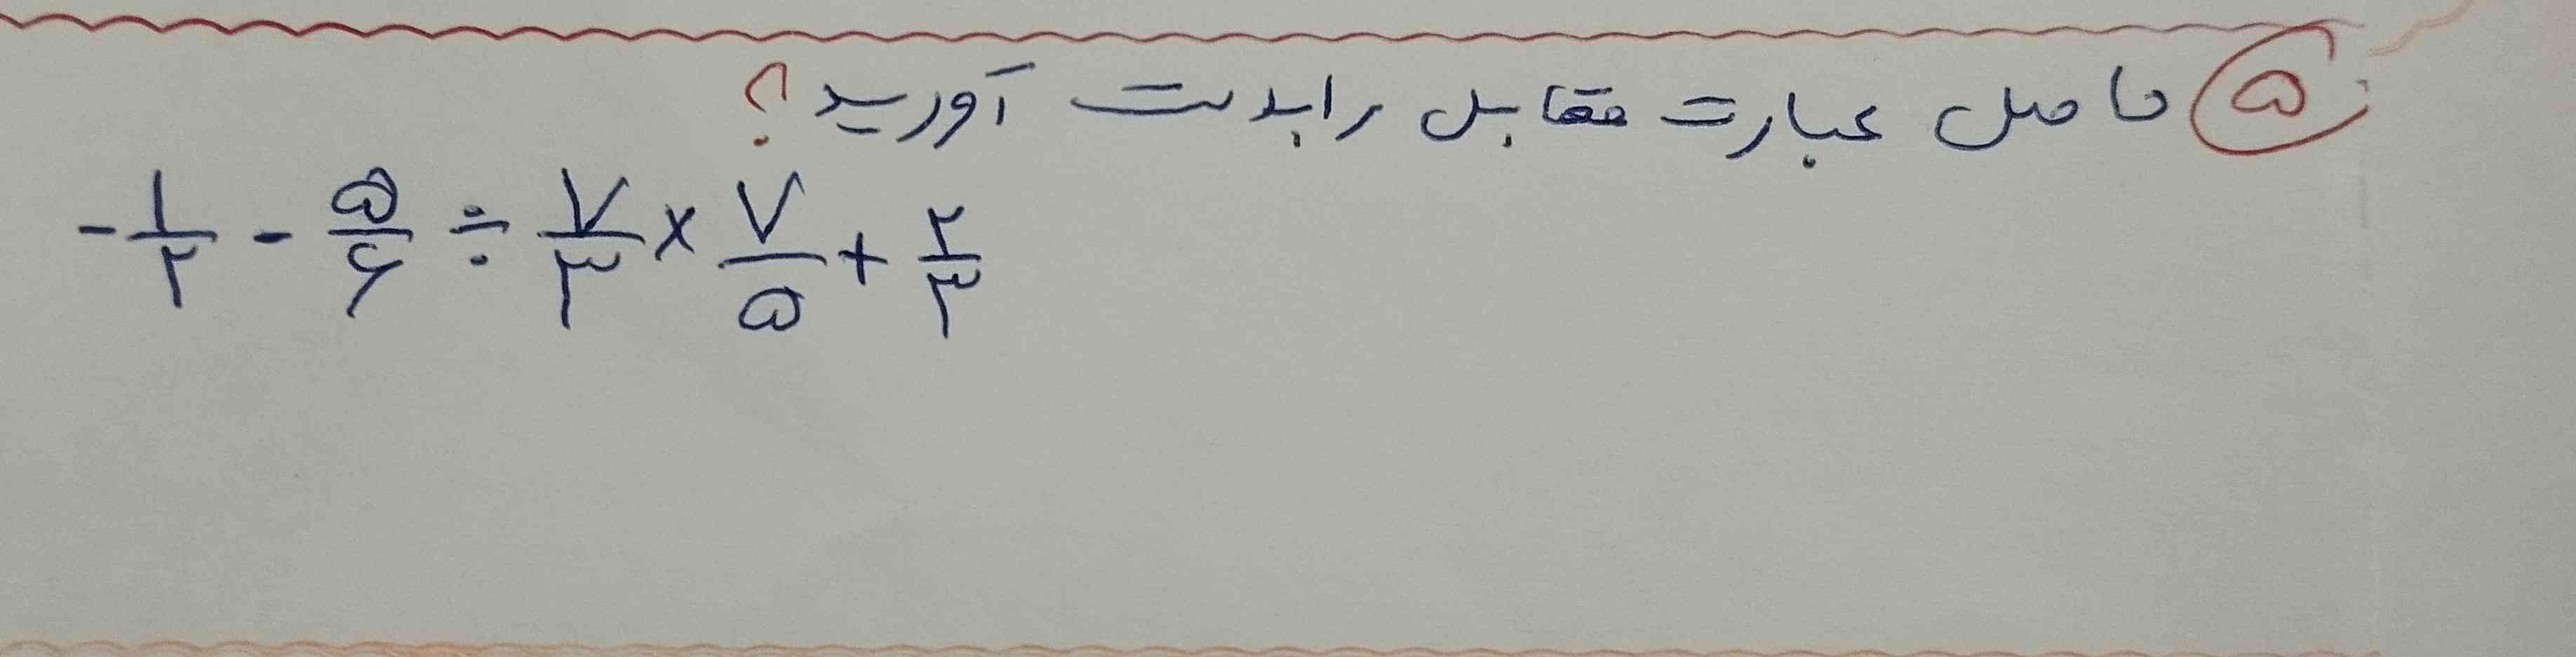 ۵ حاصل عبارت مقابل را بدست آورید؟
- ۱/۲ - ۵/۶ ÷ ۷/۳ × ۷/۵ + ۲/۳